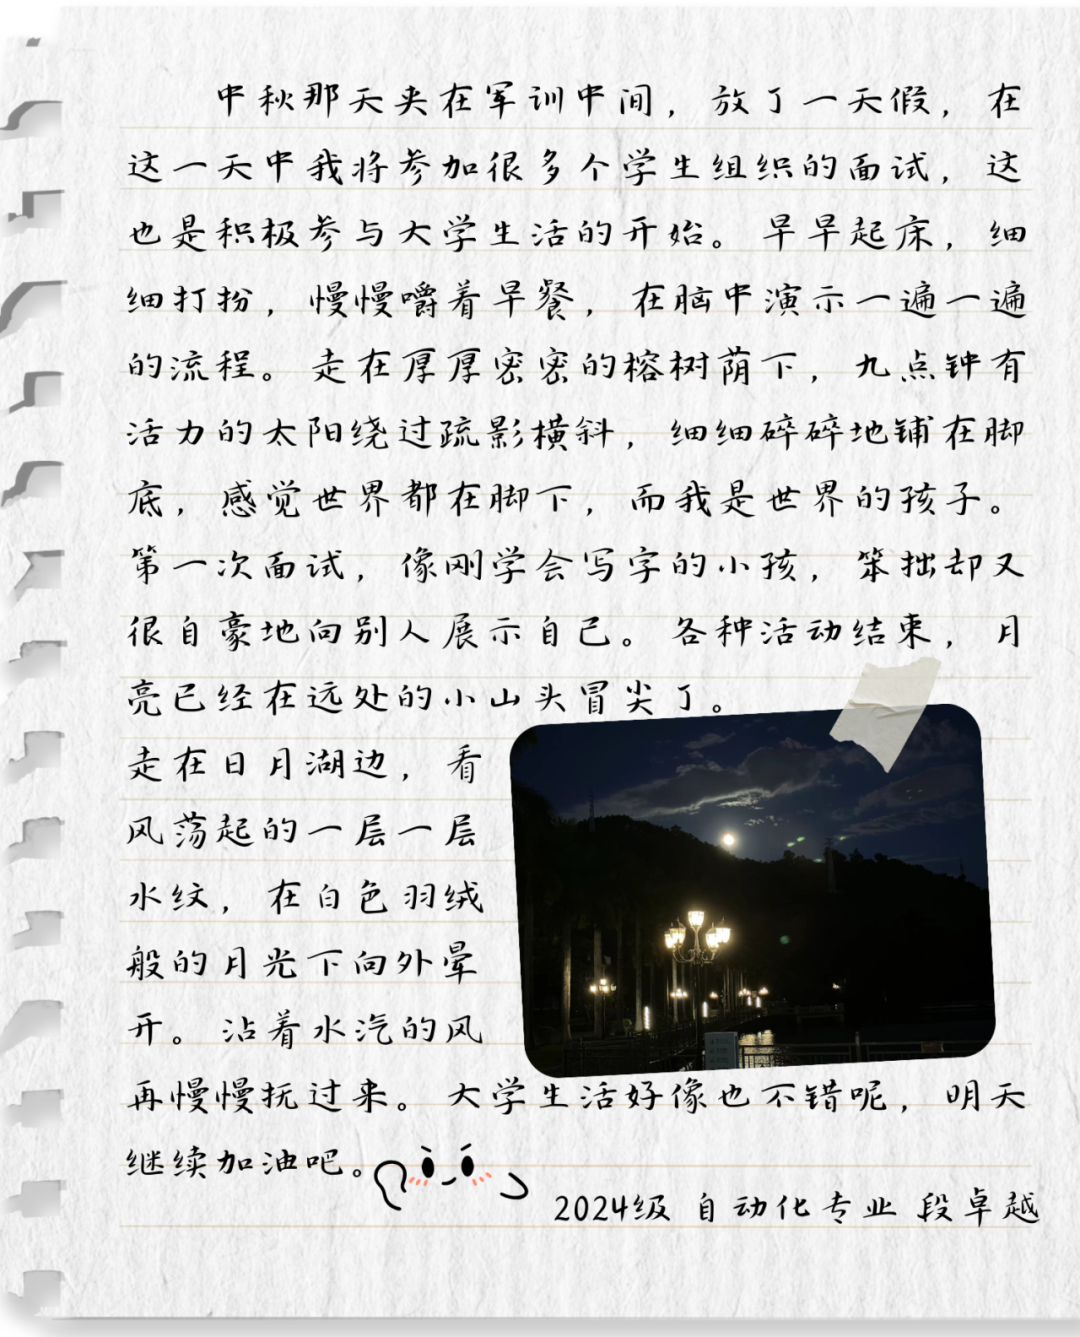 中秋那天夹在军训中间，放了一天假，在
这一天中我将参加很多个学生组织的面试，这
也是积极参与大学生活的开始。早早起床，细
细打扮，慢慢嚼着早餐，在脑中演示一遍一遍
的流程。走在厚厚密密的榕树荫下，九点钟有
活力的太阳绕过疏影横斜，细细碎碎地铺在脚
底，感觉世界都在脚下，而我是世界的孩子。
第一次面试，像刚学会写字的小孩，笨拙却又
很自豪地向别人展示自己。各种活动结束，月
亮已经在远处的小山头冒尖了。
走在日月湖边，看
风荡起的一层一层
水纹，在白色羽绒
般的月光下向外晕
开。沾着水汽的风
再慢慢抚过来。大学生活好像也不错呢，明天
继续加油吧。
2024级 自动化专业 段卓越